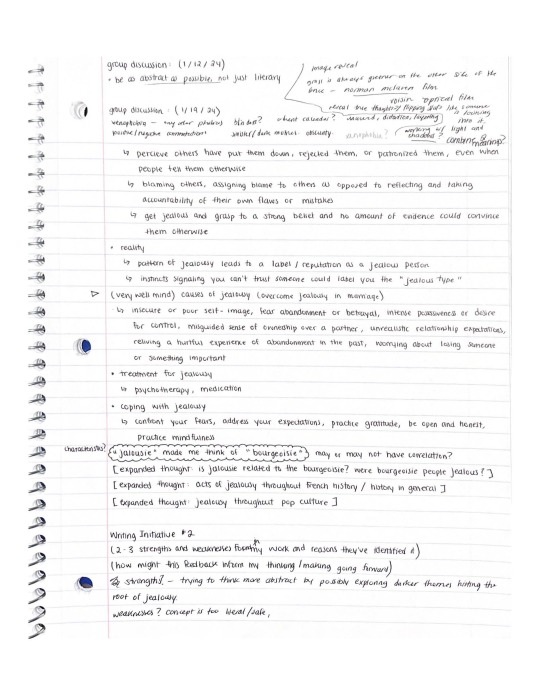 group discussion: (1/12/24)
• be as abstract as possible, not just literary
image reveal
grass is always greener on the other side of the
fence - norman mclaren film
voisin optical film
group discussion: (1/19/24)
xenophobia - any other phobias
positive/negative connotations
what causes?
xenophobia?
working w/ light and
shadows?
↳ percieve others have put them down, rejected them, or patronized them, even when
people tell them otherwise
↳ blaming others, assigning blame to others as opposed to reflecting and taking
accountability of their own flaws or mistakes
↳ get jealous and grasp to a strong belief and no amount of evidence could convince
them otherwise
• reality
↳ pattern of jealousy leads to a label / reputation as a jealous person
↳ instincts signaling you can't trust someone could label you the "jealous type"
▷ (very well mind) causes of jealousy (overcome jealousy in marriage)
↳ insecure or poor self-image, fear abandonment or betrayal, intense possessiveness or desire
for control, misguided sense of ownership over a partner, unrealistic relationship expectations,
reliving a hurtful experience of abandonment in the past, worrying about losing someone
or something important
• treatment for jealousy
↳ psychotherapy, medication
• coping with jealousy
↳ confront your fears, address your expectations, practice gratitude, be open and honest,
practice mindfulness
characteristics? "jalousie" made me think of "bourgeoisie" may or may not have correlation?
[expanded thought: is jalousie related to the bourgeoisie? were bourgeoisie people jealous?]
[expanded thought: acts of jealousy throughout french history / history in general]
[expanded thought: jealousy throughout pop culture]
Writing Initiative #2
(2-3 strengths and weaknesses from my work and reasons they've identified it)
(how might this feedback inform my thinking/making going forward)
strengths? - trying to think more abstract by possibly exploring darker themes hinting the
root of jealousy.
weaknesses? concept is too literal/safe,